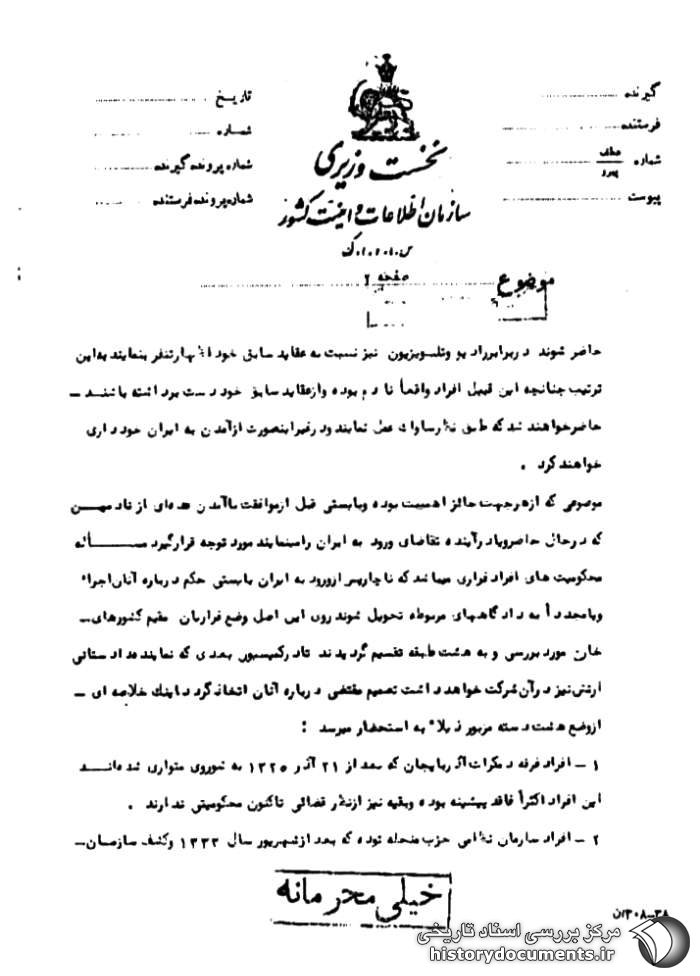 گیرنده
فرستنده
شماره عطف پیرو
پیوست
تاریخ
شماره
شماره پرونده گیرنده
شماره پرونده فرستنده
نخست وزیری
سازمان اطلاعات و امنیت کشور
س.ا.و.ا.ک
موضوع
صفحه ۲
حاضر شوند در برابر رادیو و تلویزیون نیز نسبت به عقاید سابق خود اظهار تنفر بنمایند به این
ترتیب چنانچه این قبیل افراد واقعاً نادم بوده و از عقاید سابق خود دست برداشته باشند ـ
حاضر خواهند شد که طبق نظر ساواک عمل نمایند و در غیر اینصورت از آمدن به ایران خودداری
خواهند کرد .
موضوعی که از هر جهت حائز اهمیت بوده و بایستی قبل از موافقت با آمدن عده‌ای از نادمین
که در حال حاضر و یا در آینده تقاضای ورود به ایران را مینمایند مورد توجه قرار گیرد مسأله
محکومیت های افراد فراری میباشد که ناچار پس از ورود به ایران بایستی حکم درباره آنان اجراء
و یا مجدداً به دادگاههای مربوطه تحویل شوند روی این اصل وضع فراریان مقیم کشورهای ـ
خارج مورد بررسی و به هشت طبقه تقسیم گردیدند تا در کمیسیون بعدی که نماینده دادستانی
ارتش نیز در آن شرکت خواهد داشت تصمیم مقتضی درباره آنان اتخاذ گردد اینک خلاصه ای ـ
از وضع هشت دسته مزبور ذیلاً به استحضار میرسد :
۱ ـ افراد فرقه دمکرات آذربایجان که بعد از ۲۱ آذر ۱۳۲۵ به شوروی متواری شده‌اند
این افراد اکثراً فاقد پیشینه بوده و بقیه نیز از نظر قضائی تاکنون محکومیتی ندارند .
۲ ـ افراد سازمان نظامی حزب منحله توده که بعد از شهریور سال ۱۳۳۳ و کشف سازمان ـ
خیلی محرمانه
مرکز بررسی اسناد تاریخی
historydocuments.ir